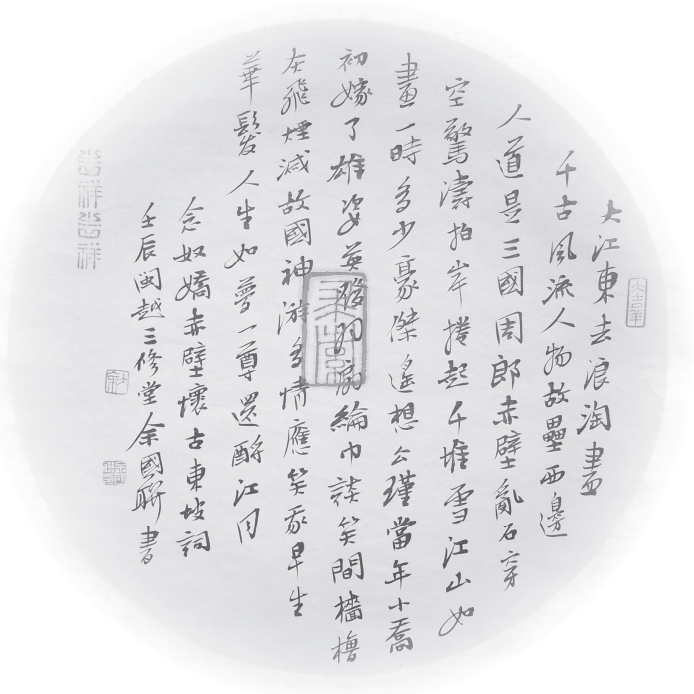 大江東去浪淘盡
千古風流人物故壘西邊
人道是三國周郎赤壁亂石穿
空驚濤拍岸捲起千堆雪江山如
畫一時多少豪傑遙想公瑾當年小喬
初嫁了雄姿英發羽扇綸巾談笑間檣櫓
灰飛煙滅故國神游多情應笑我早生
華髮人生如夢一尊還酹江月
念奴嬌赤壁懷古東坡詞
壬辰閩越三修堂余國聯書